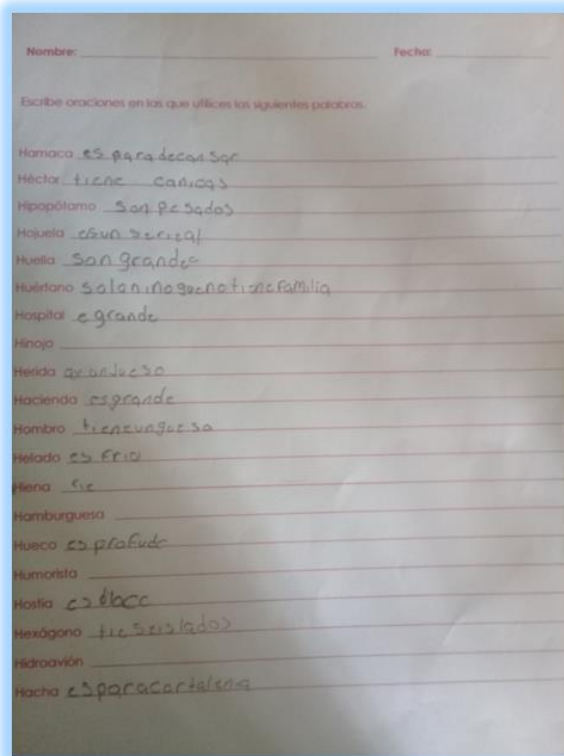 Nombre: Fecha:
Escribe oraciones en las que utilices las siguientes palabras.
Hamaca es para decansar
Héctor tiene canicas
Hipopótamo son pesados
Hojuela es un serieal
Huella son grandes
Huérfano solo nino que no tiene familia
Hospital e grande
Hinojo
Herida
Hacienda es grande
Hombro tiene un gueso
Helado es frio
Hiena rie
Hamburguesa
Hueco es profudo
Humorista
Hostia es
Hexágono tie seis lados
Hidroavión
Hacha es para cortaleña